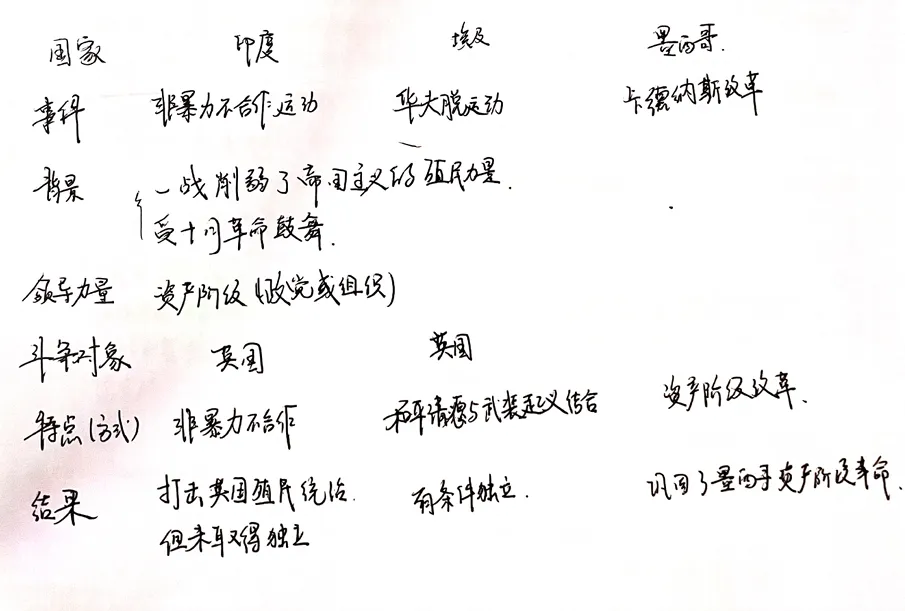 国家 印度 埃及 墨西哥.
事件 非暴力不合作运动 华夫脱运动 卡德纳斯改革
背景 一战削弱了帝国主义的殖民力量.
受十月革命鼓舞.
领导力量 资产阶级(政党或组织)
斗争对象 英国 英国
特点(方式) 非暴力不合作 和平请愿与武装起义结合 资产阶级改革.
结果 打击英国殖民统治. 有条件独立. 巩固了墨西哥资产阶级革命.
但未取得独立